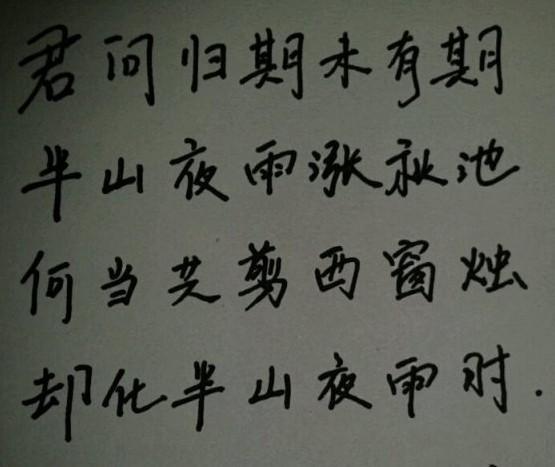 君问归期未有期
半山夜雨涨秋池
何当共剪西窗烛
却化半山夜雨时.